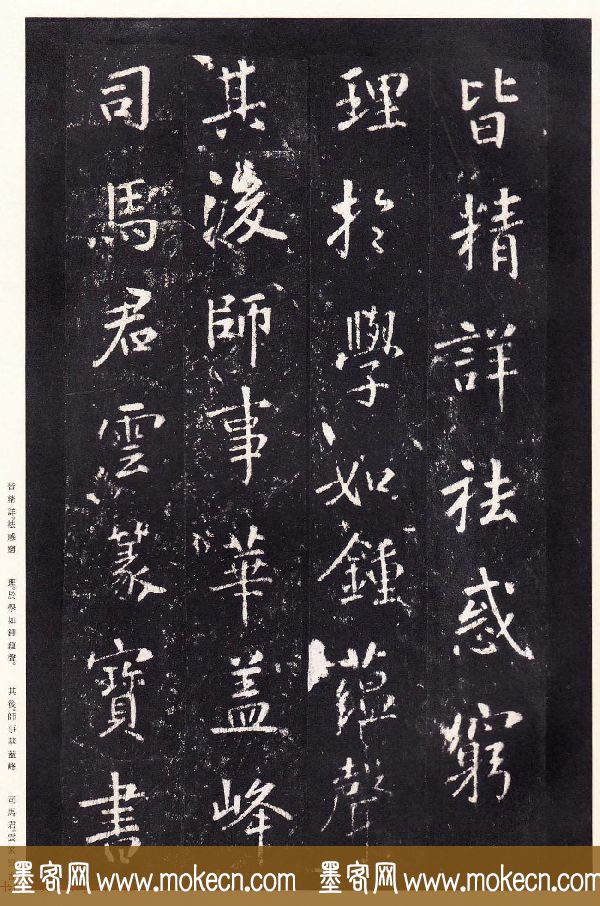 皆精詳祛惑窮
理於學如鍾蘊聲
其後師事華蓋峰
司馬君雲篆寶書
皆精詳祛惑窮 理於學如鍾蘊聲。 其後師事華蓋峰 司馬君雲篆
墨客网 www.mokecn.com 墨客网 www.mokecn.com